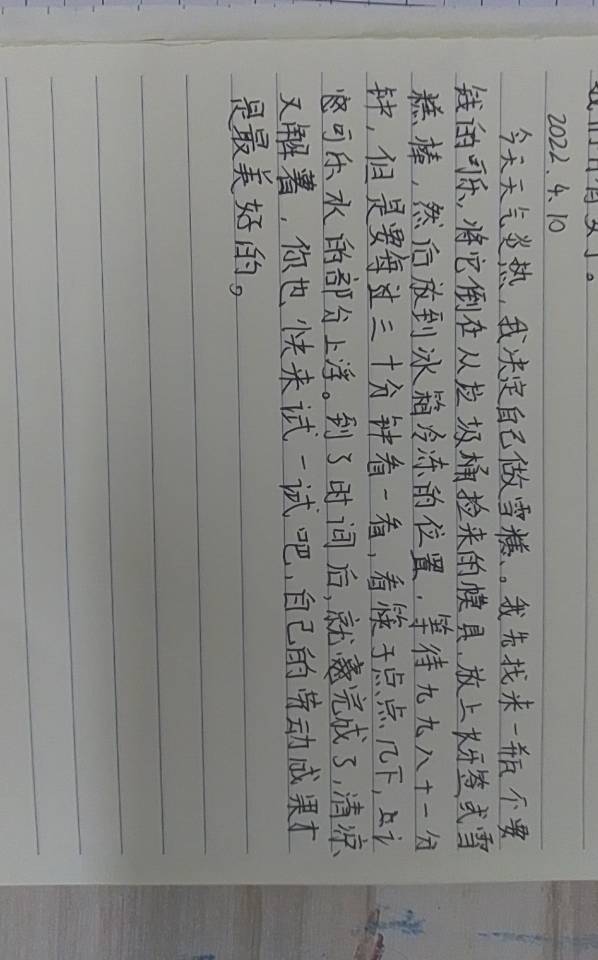 2022.4.10
今天天气炎热，我决定自己做雪糕、。我先找来一瓶不要
钱的可乐、将它倒在从垃圾桶捡来的模具，放上长签或雪
糕棒，然后放到冰箱冷冻的位置，等待九九八十一分
钟，但是要每过三十分钟看一看，看筷子点点几下，上让
可乐水的部分上浮。到了时间后，就完成了，清凉
又解暑，你也快来试一试吧，自己的劳动成果才
是最美好的。